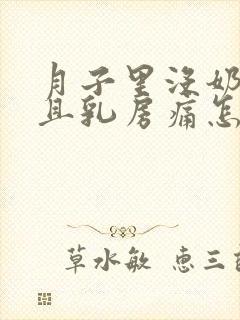 月子里没奶
且乳房痛怎
草水敏 惠三